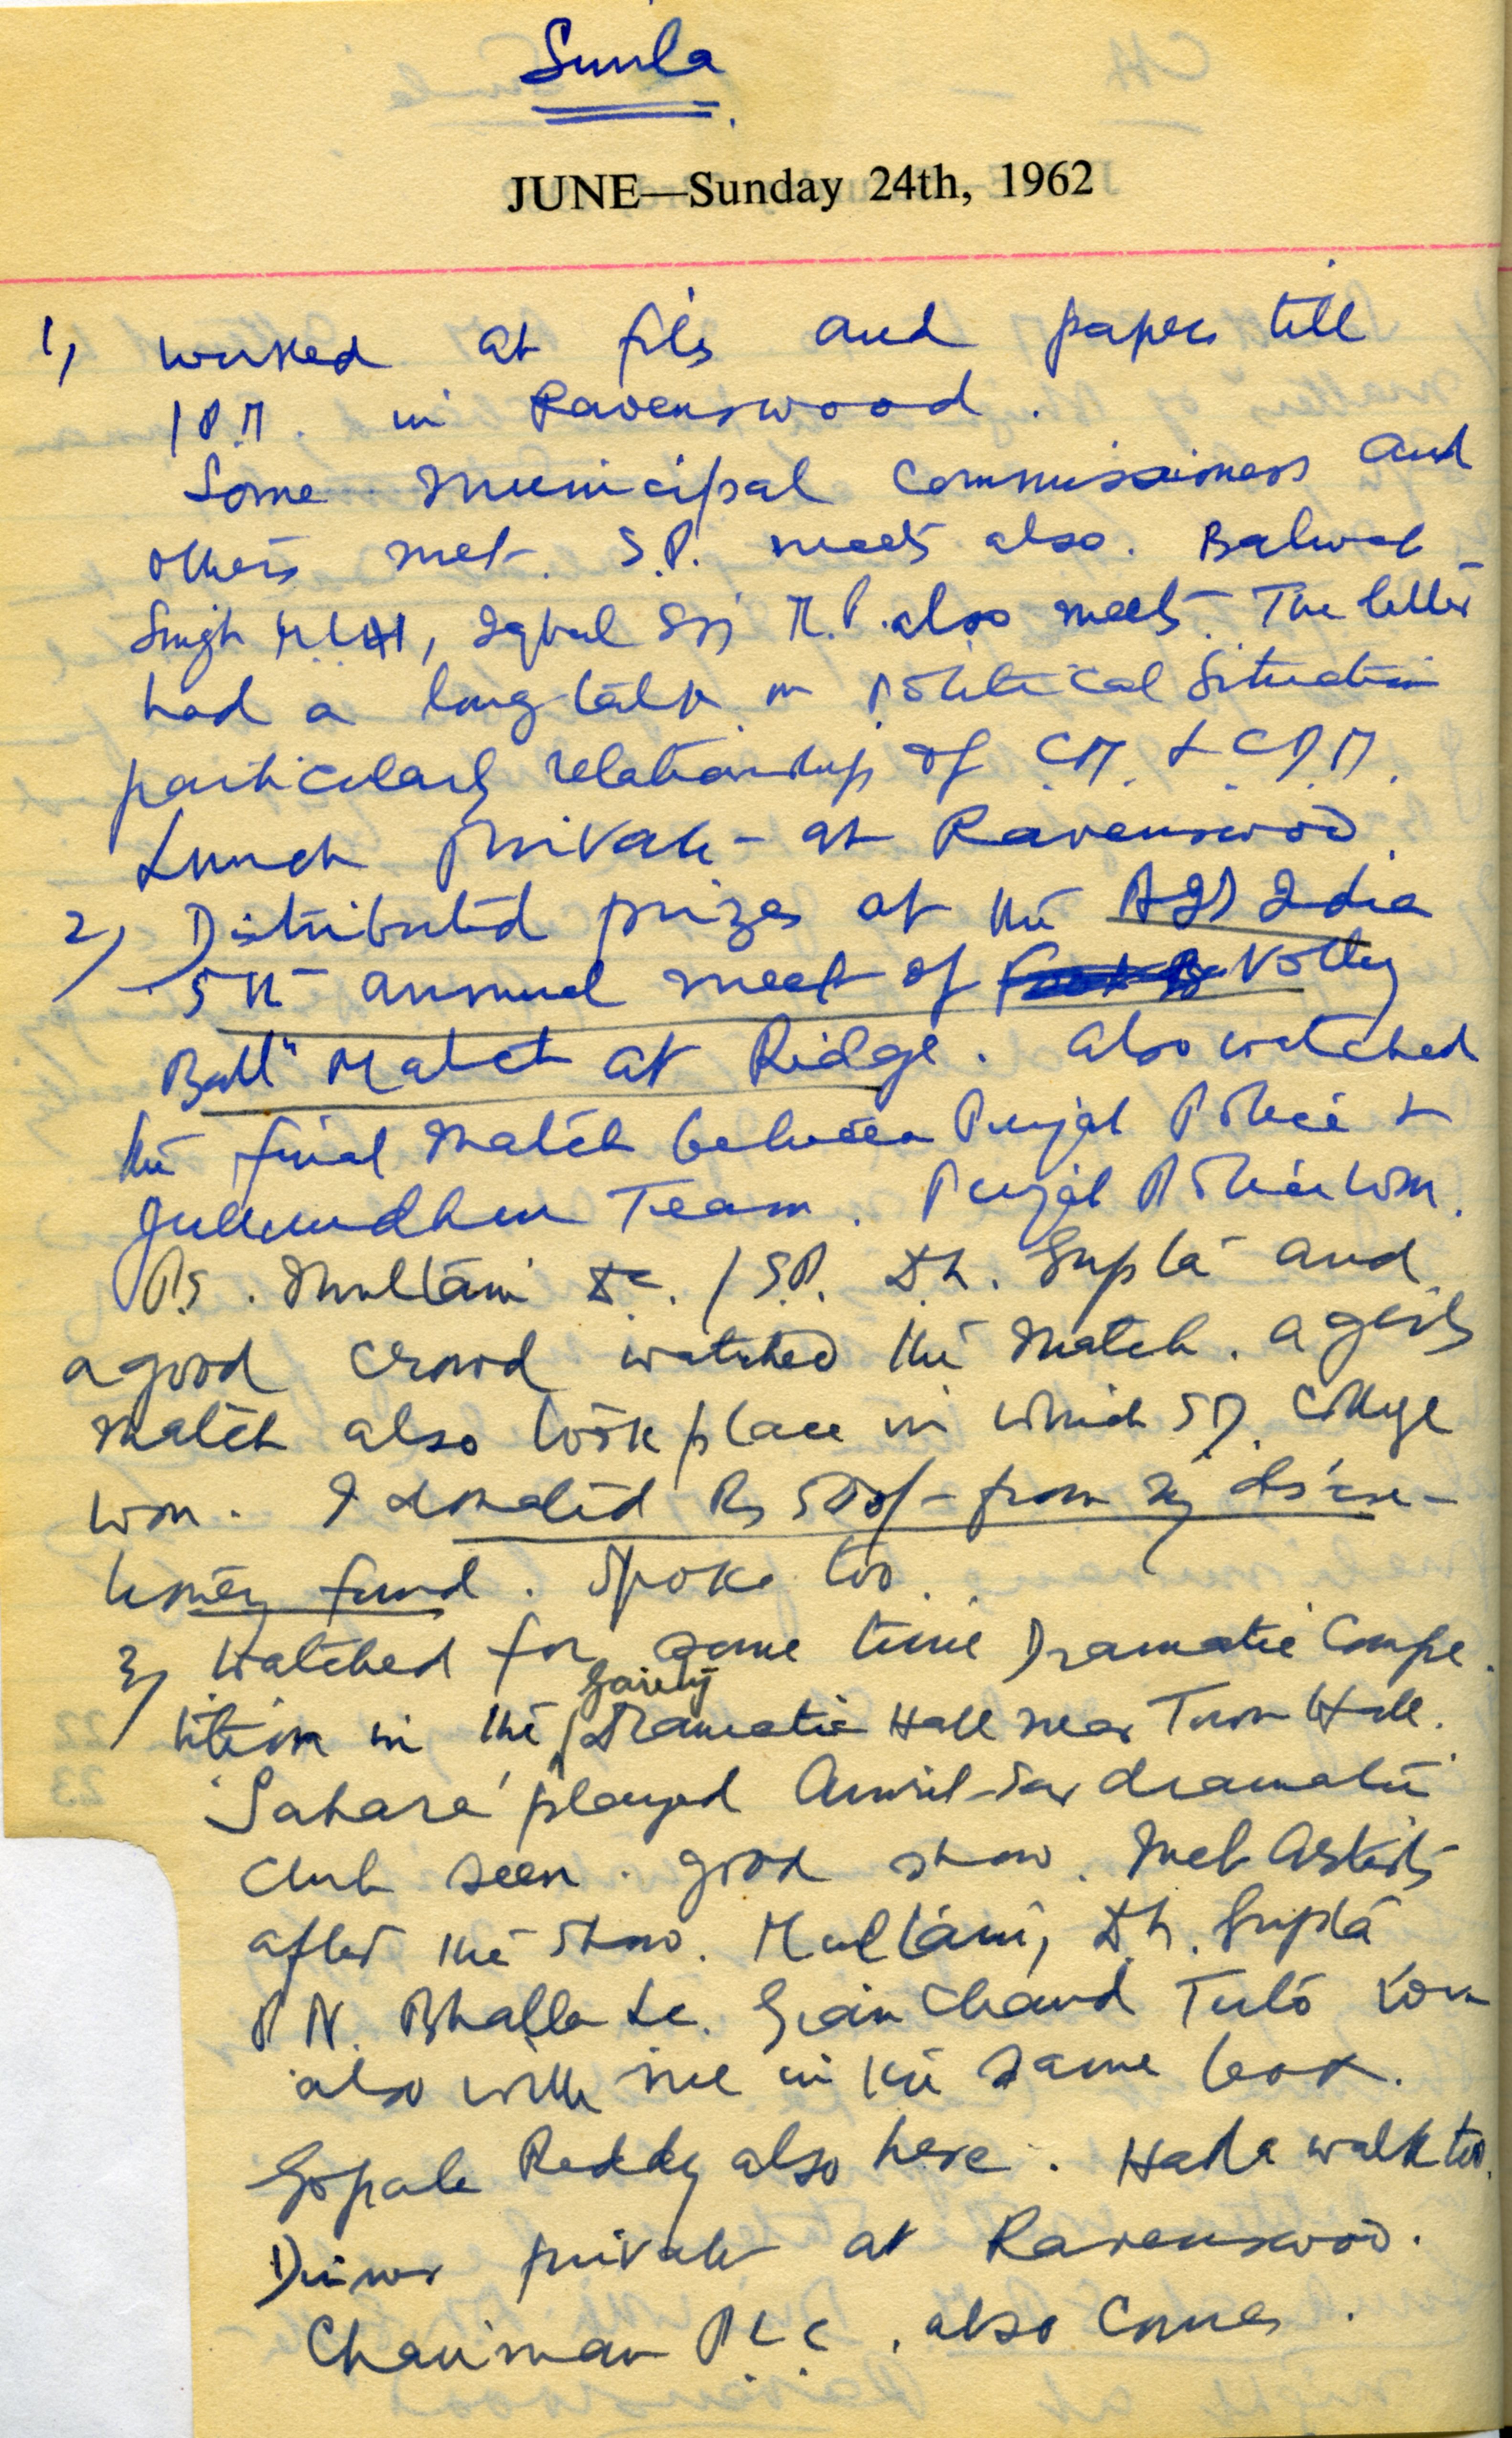 Simla
JUNE—Sunday 24th, 1962
1) worked at files and papers till
1 P.M. in Ravenswood.
Some Municipal Commissioners and
others met. S.P. meets also. Balwat
Singh MLA, Iqbal Sing M.P. also meets. The latter
had a long talk on political situation
particularly relationship of C.M. & C.P.M.
Lunch private - at Ravenswood.
2) Distributed prizes at the All India
5th annual meet of Volley
Ball" Match at Ridge. Also watched
the final match between Punjab Police &
Jullundhur Team. Punjab Police won.
P.S. Multani D.C. / S.P. Gupta and
a good crowd watched the match. a girls
match also took place in which S.D. College
won. I donated Rs 500/- from my discre-
tionary fund. Spoke too.
3) Watched for some time Dramatic Compe
tition in the Gaiety Dramatic Hall near Town Hall.
'Sahara' played Amrit-sar dramatic
Club seen. good show. Met Artists
after the show. Multani, Gupta
P.N. Bhalla Gian Chand
also with me in the same box.
Gopala Reddy also here. Had a walk too.
Dinner private at Ravenswood.
Chairman also comes.